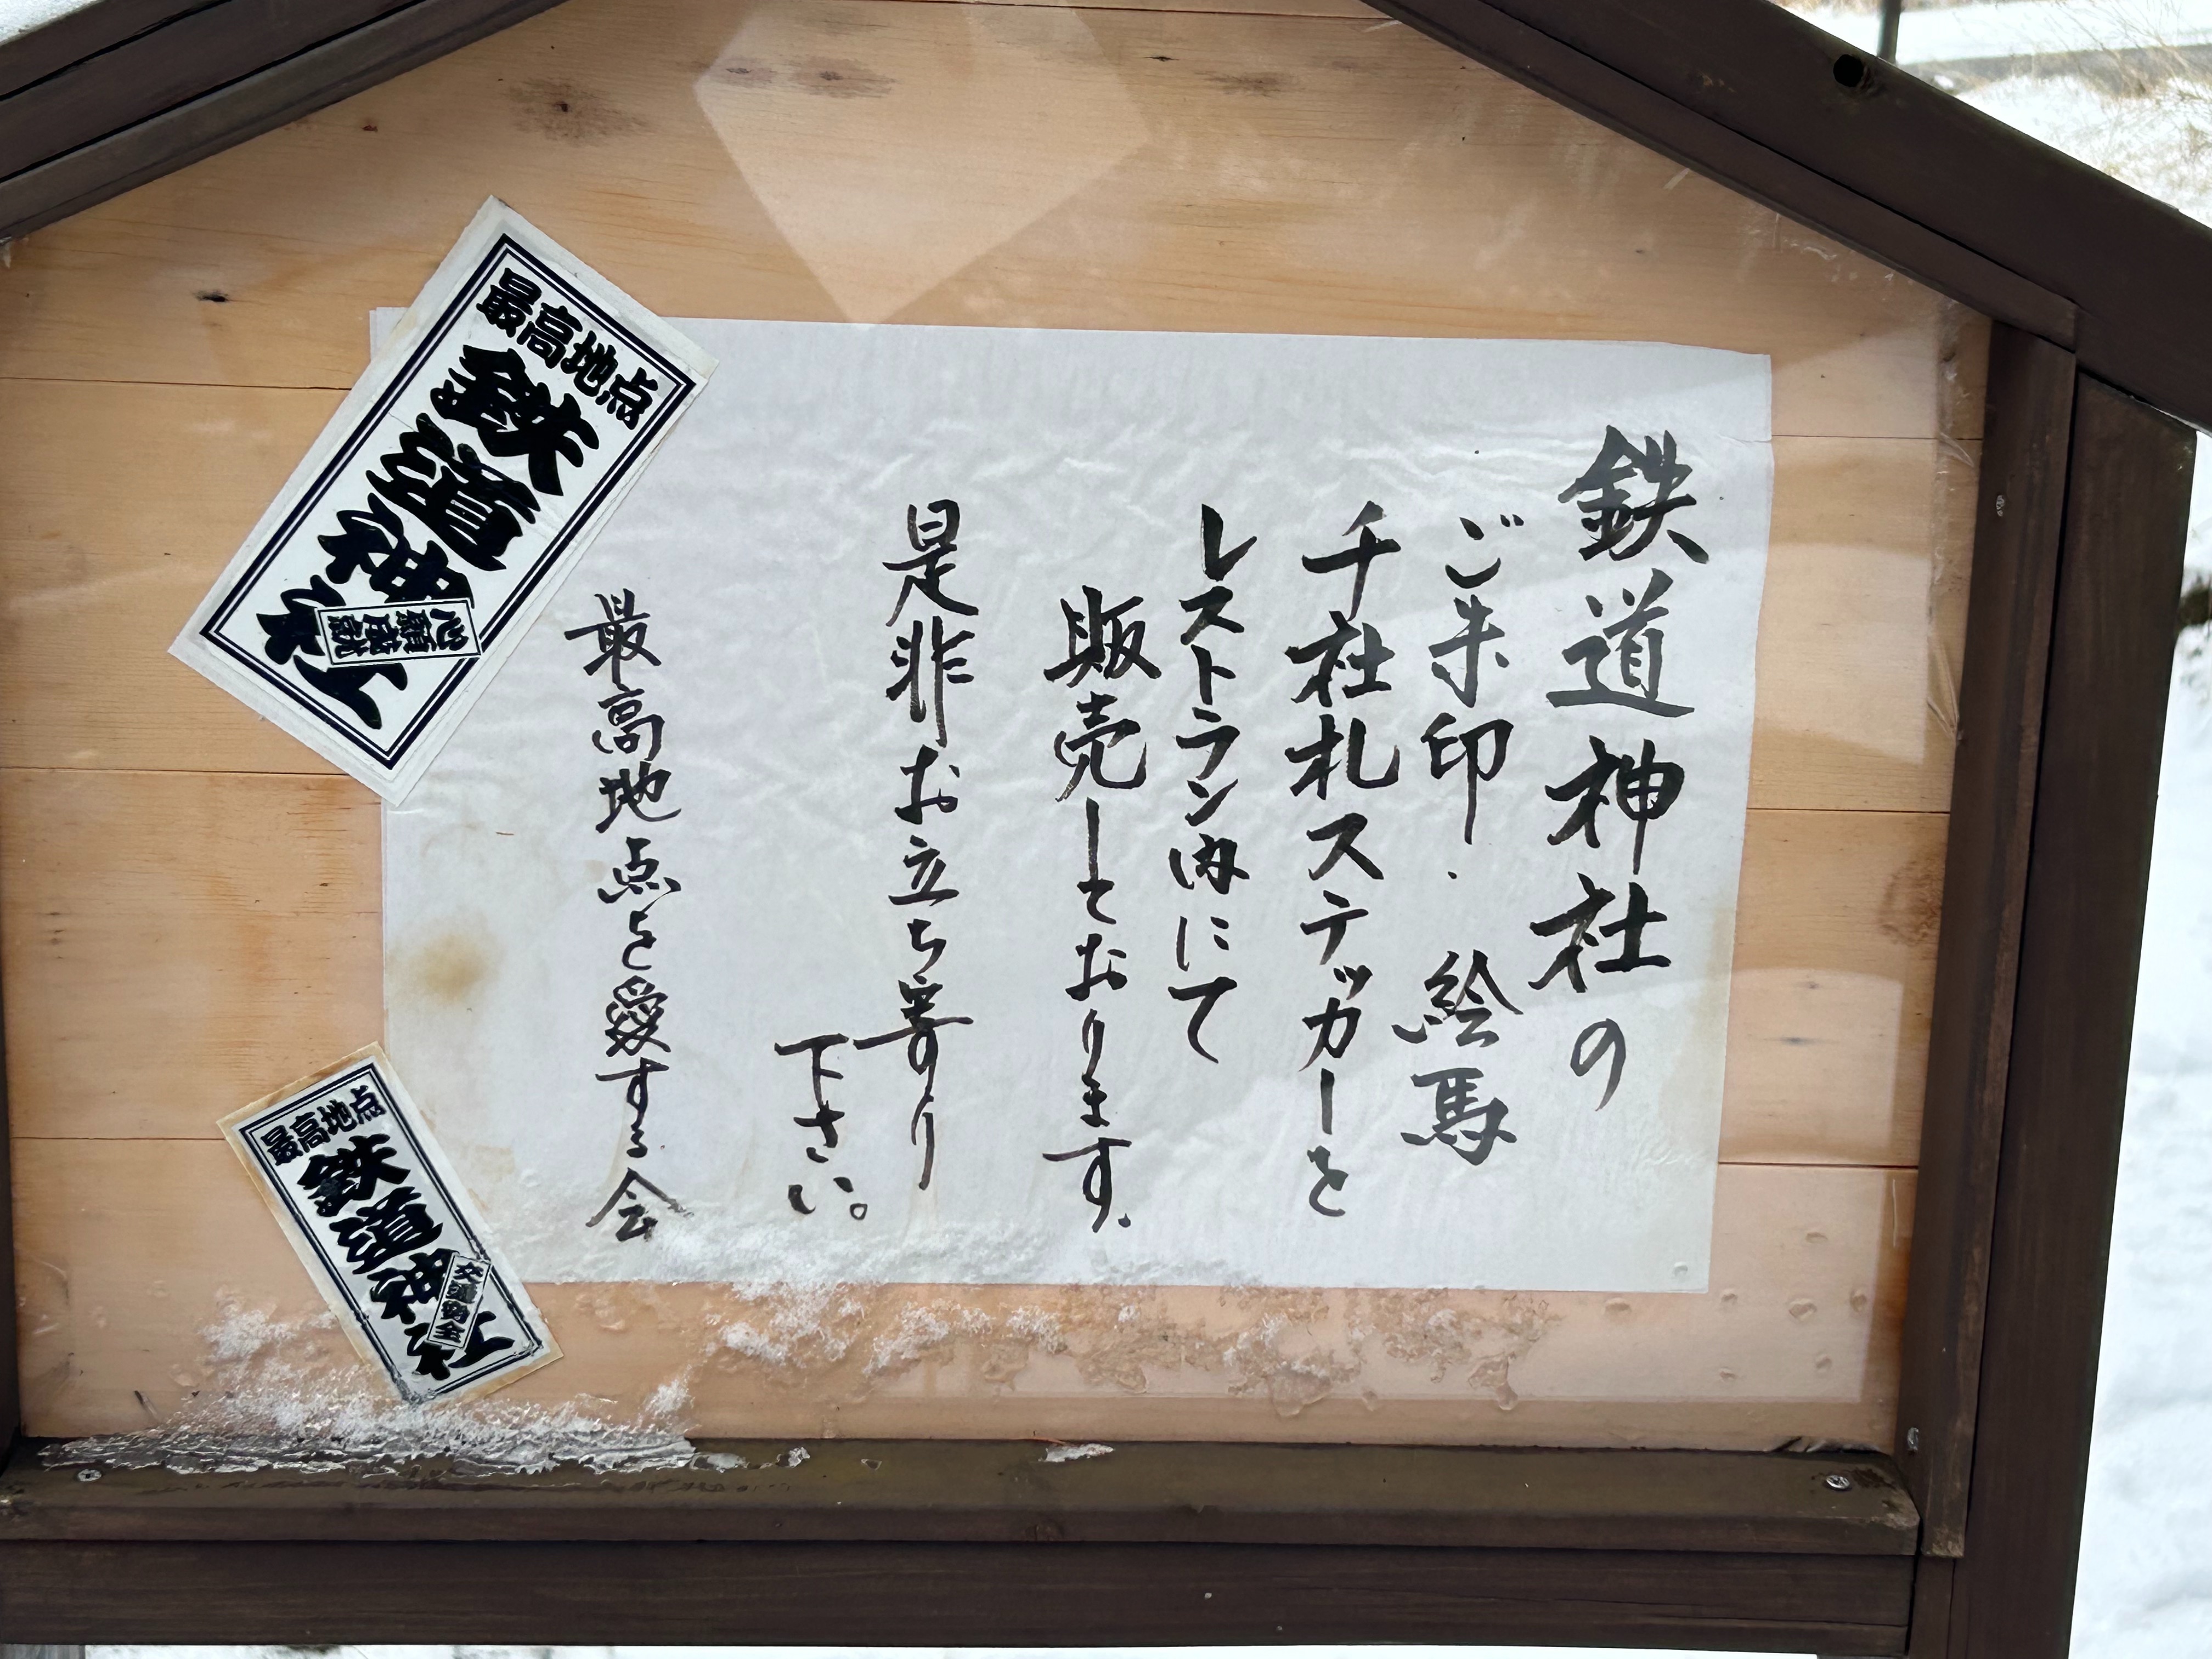 鉄道神社の
ご朱印・絵馬
千社札ステッカーを
レストラン内にて
販売しております.
是非お立ち寄り
下さい。
最高地点を愛する会
最高地点
鉄道神社
心願成就
最高地点
鉄道神社
交通安全